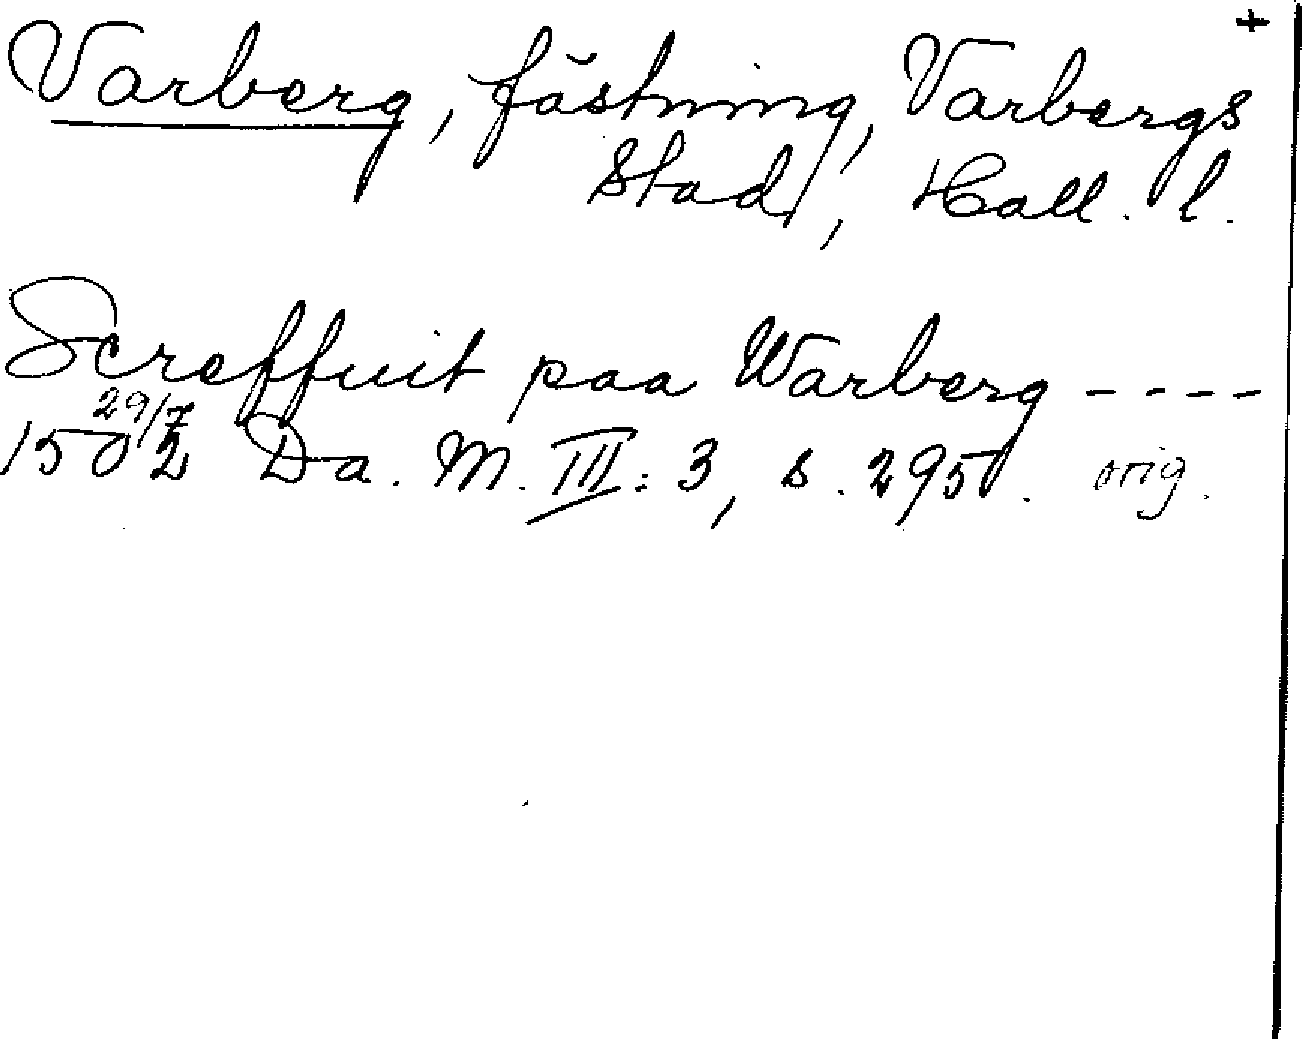 +
Varberg, fästning, Varbergs
stad, Hall. l.
Screffuit paa Warberg ----
1502 29/7 Da. M. III: 3, s. 295. orig.